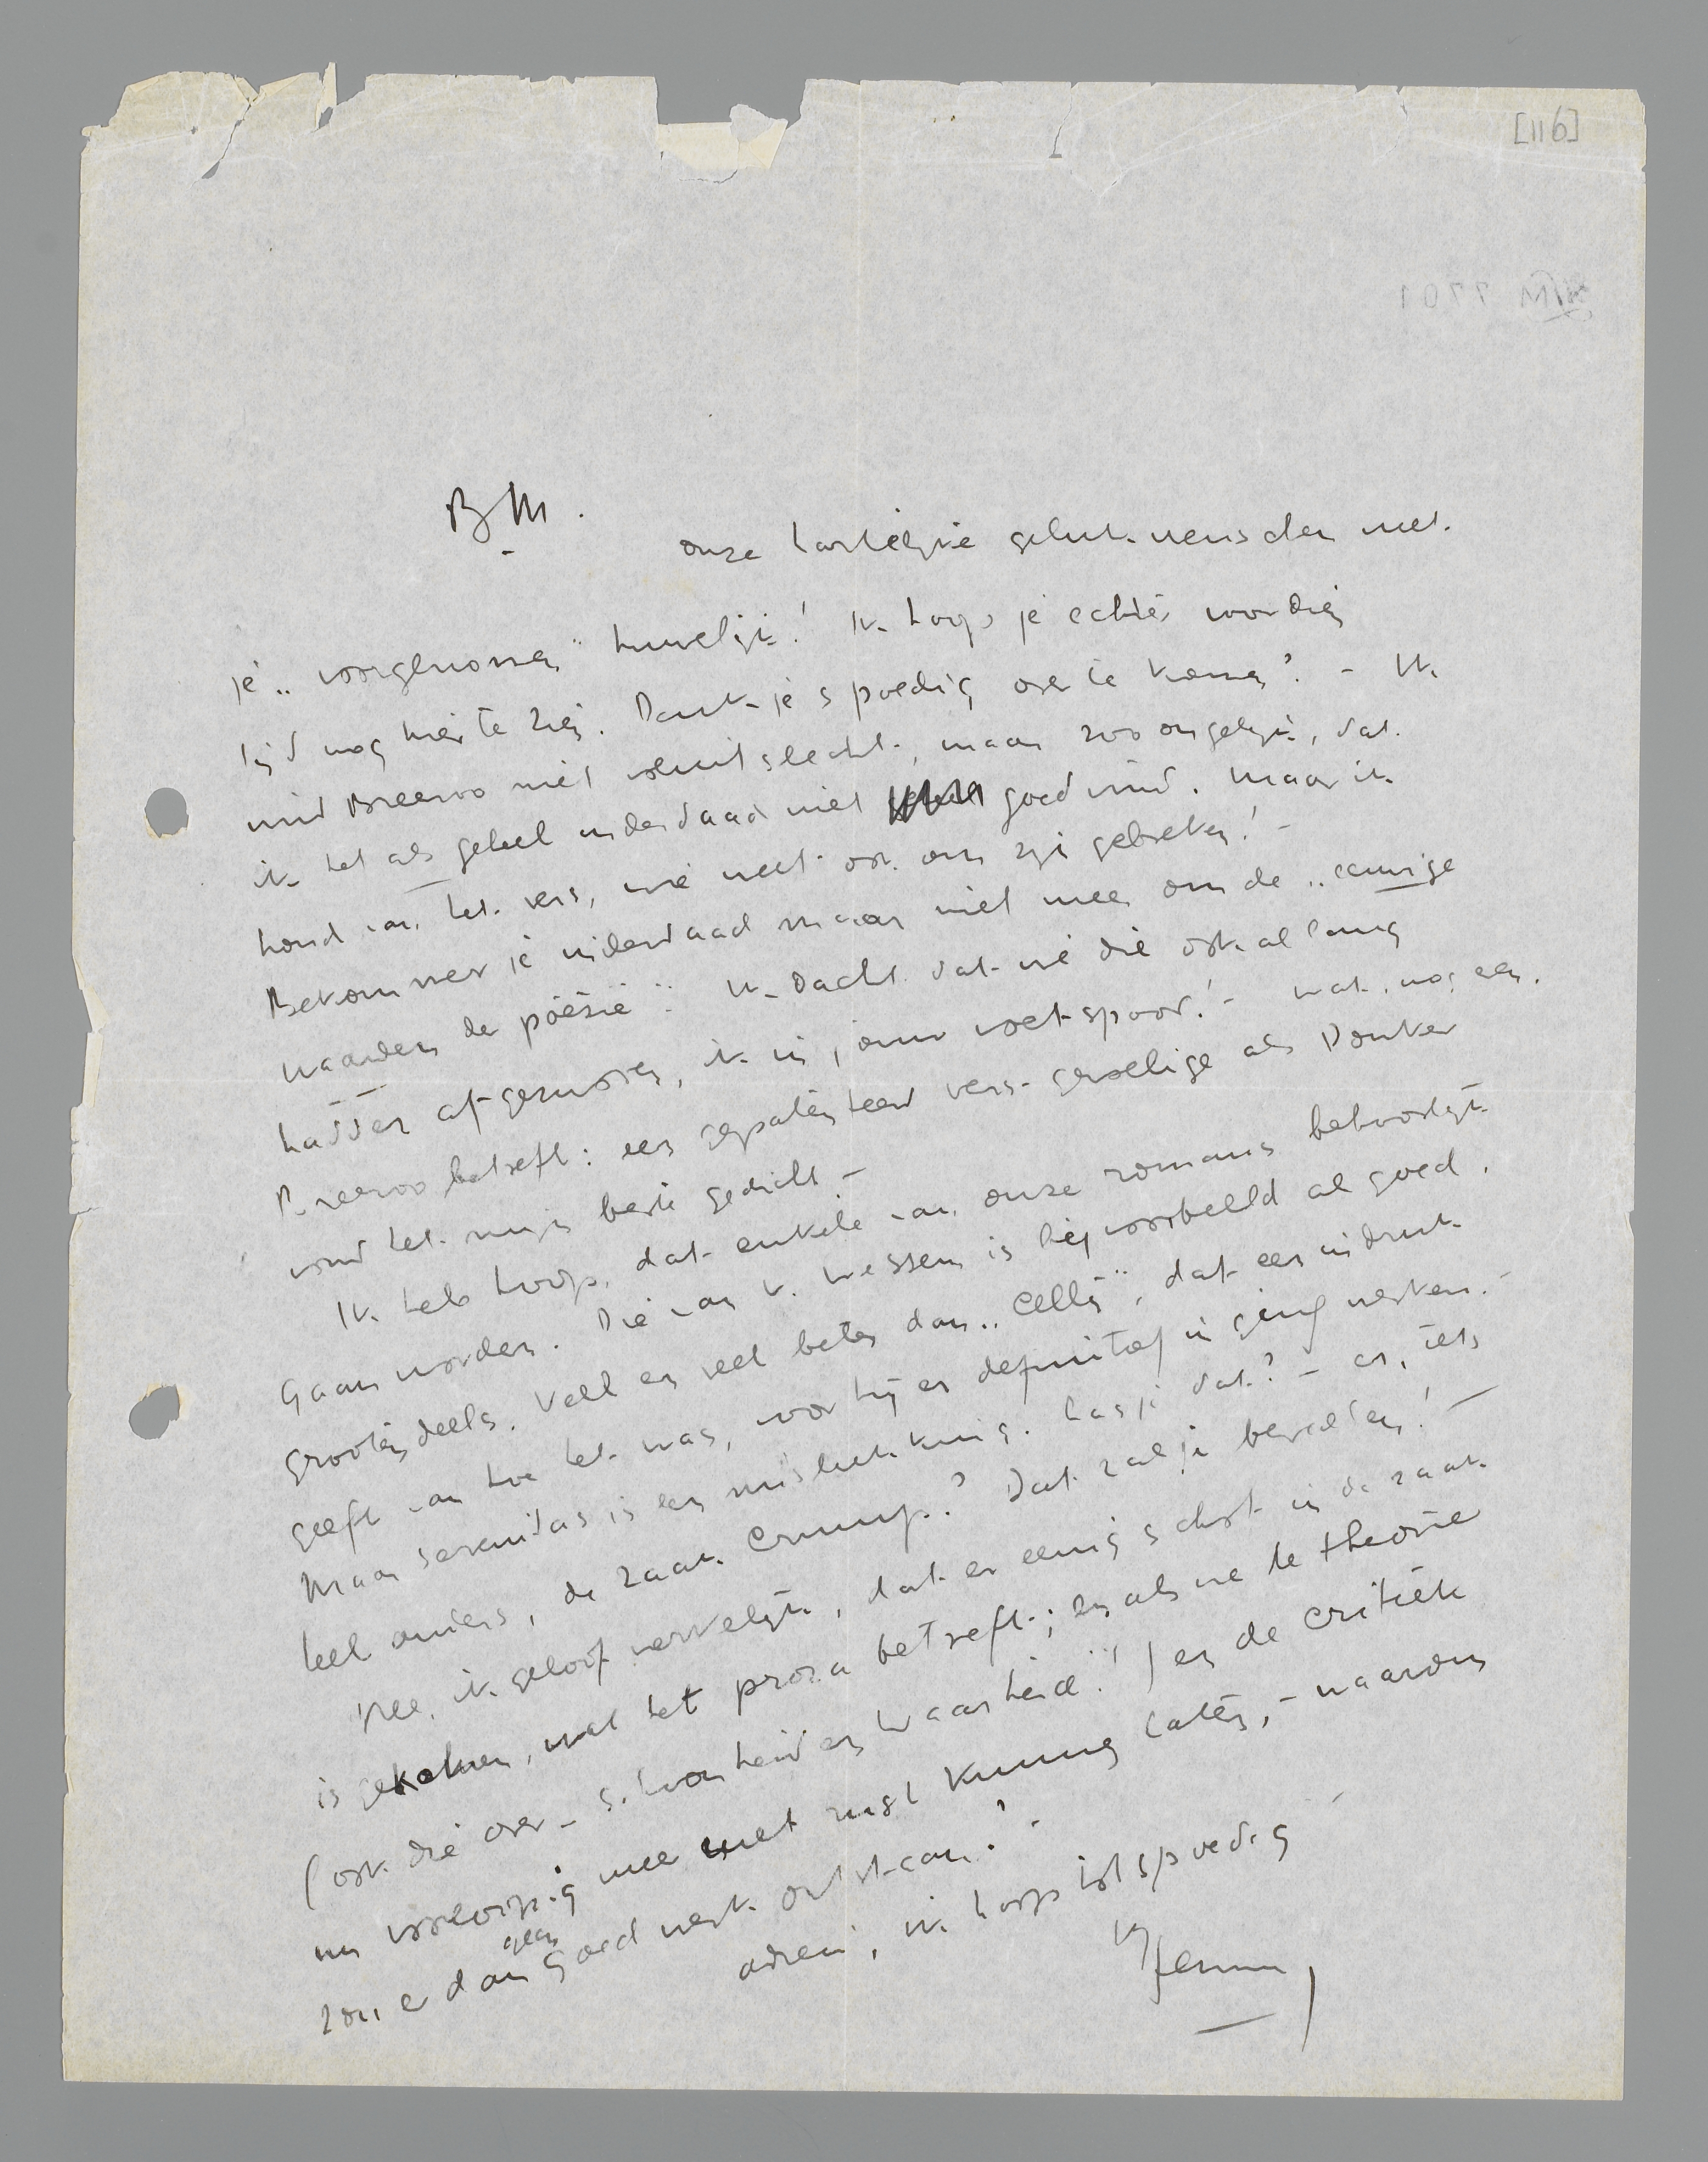 [116]
B M.
onze hartelijke gelukwenschen met
je „voorgenomen" huwelijk! Ik hoop je echter voor dien
tijd nog hier te zien. Denk je spoedig over te komen? – Ik
vind Breeroo niet absoluut slecht, maar zoo ongelijk, dat
ik het als geheel inderdaad niet goed vind. Maar ik
houd van het vers, wie weet ook om zijn gebreken! –
Bekommer je inderdaad maar niet meer om de „eeuwige
waarden der poëzie". Ik dacht dat we die ook al lang
hadden afgezworen, ik in jouw voetspoor! – Wat nog een
Breeroo betreft: een gepatenteerd vers-gevoelige als Donker
vond het mijn beste gedicht –
Ik heb hoop, dat enkele van onze romans behoorlijk
gaan worden. Die van v. Wessem is bijvoorbeeld al goed,
grootendeels. Veel en veel beter dan „Celly", dat een indruk
geeft van hoe het was, voor hij er definitief in ging werken. –
Maar Serenitas is een mislukking. Las je dat? – en, iets
heel anders, de zaak Crump? Dat zal je bevallen! –
Nee, ik geloof werkelijk, dat er eenig schot in de zaak
is gekomen, wat het proza betreft; en als we de theorie
(ook die over – schoonheid en waarheid"!) en de critiek
nu voorloopig mee met rust kunnen laten, – waarom
zou er dan geen goed werk ontstaan? –
adieu, ik hoop tot spoedig
H Jenny